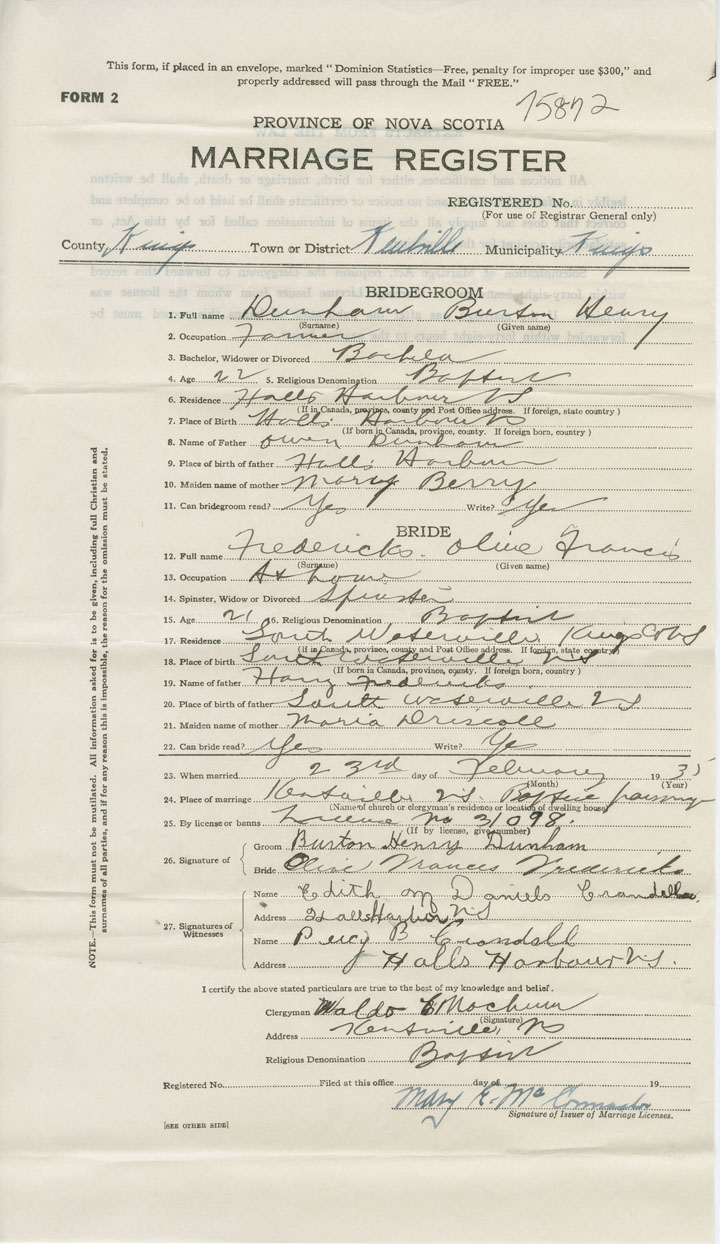 This form, if placed in an envelope, marked “ Dominion Statistics—Free, penalty for improper use $300,” and
properly addressed will pass through the Mail “ FREE.”
FORM 2
75872
PROVINCE OF NOVA SCOTIA
MARRIAGE REGISTER
REGISTERED No.
(For use of Registrar General only)
County Kings Town or District Kentville Municipality Kings
BRIDEGROOM
1. Full name Dunham Burton Henry
(Surname) (Given name)
2. Occupation Farmer
3. Bachelor, Widower or Divorced Bachelor
4. Age 22 5. Religious Denomination Baptist
6. Residence Halls Harbour NS
(If in Canada, province, county and Post Office address. If foreign, state country )
7. Place of Birth Halls Harbour NS
(If born in Canada, province, county. If foreign born, country )
8. Name of Father Owen Dunham
9. Place of birth of father Halls Harbour
10. Maiden name of mother Mary Berry
11. Can bridegroom read? Yes Write? Yes
BRIDE
12. Full name Fredericks. Olive Francis
(Surname) (Given name)
13. Occupation At home
14. Spinster, Widow or Divorced Spinster
15. Age 21 16. Religious Denomination Baptist
17. Residence South Waterville Kings Co NS
(If in Canada, province, county and Post Office address. If foreign, state country)
18. Place of birth South Waterville NS
(If born in Canada, province, county. If foreign born, country )
19. Name of father Harry Fredericks
20. Place of birth of father South Waterville NS
21. Maiden name of mother Maria Driscoll
22. Can bride read? Yes Write? Yes
23. When married 23rd day of February 1935
(Month) (Year)
24. Place of marriage Kentville NS. Baptist parsonage
(Name of church or clergyman's residence or location of dwelling house)
25. By license or banns License No 31098.
(If by license, give number)
26. Signature of
Groom Burton Henry Dunham
Bride Olive Frances Fredericks
27. Signatures of Witnesses
Name Edith M Daniels Crandall
Address Halls Harbor NS
Name Percy B Crandall
Address Halls Harbour NS.
I certify the above stated particulars are true to the best of my knowledge and belief.
Clergyman Waldo E Machum
(Signature)
Address Kentville, NS
Religious Denomination Baptist
Registered No. Filed at this office day of 19
Mary E. Mc
Signature of Issuer of Marriage Licenses.
[SEE OTHER SIDE]
NOTE.—This form must not be mutilated. All information asked for is to be given, including full Christian and
surnames of all parties, and if for any reason this is impossible, the reason for the omission must be stated.